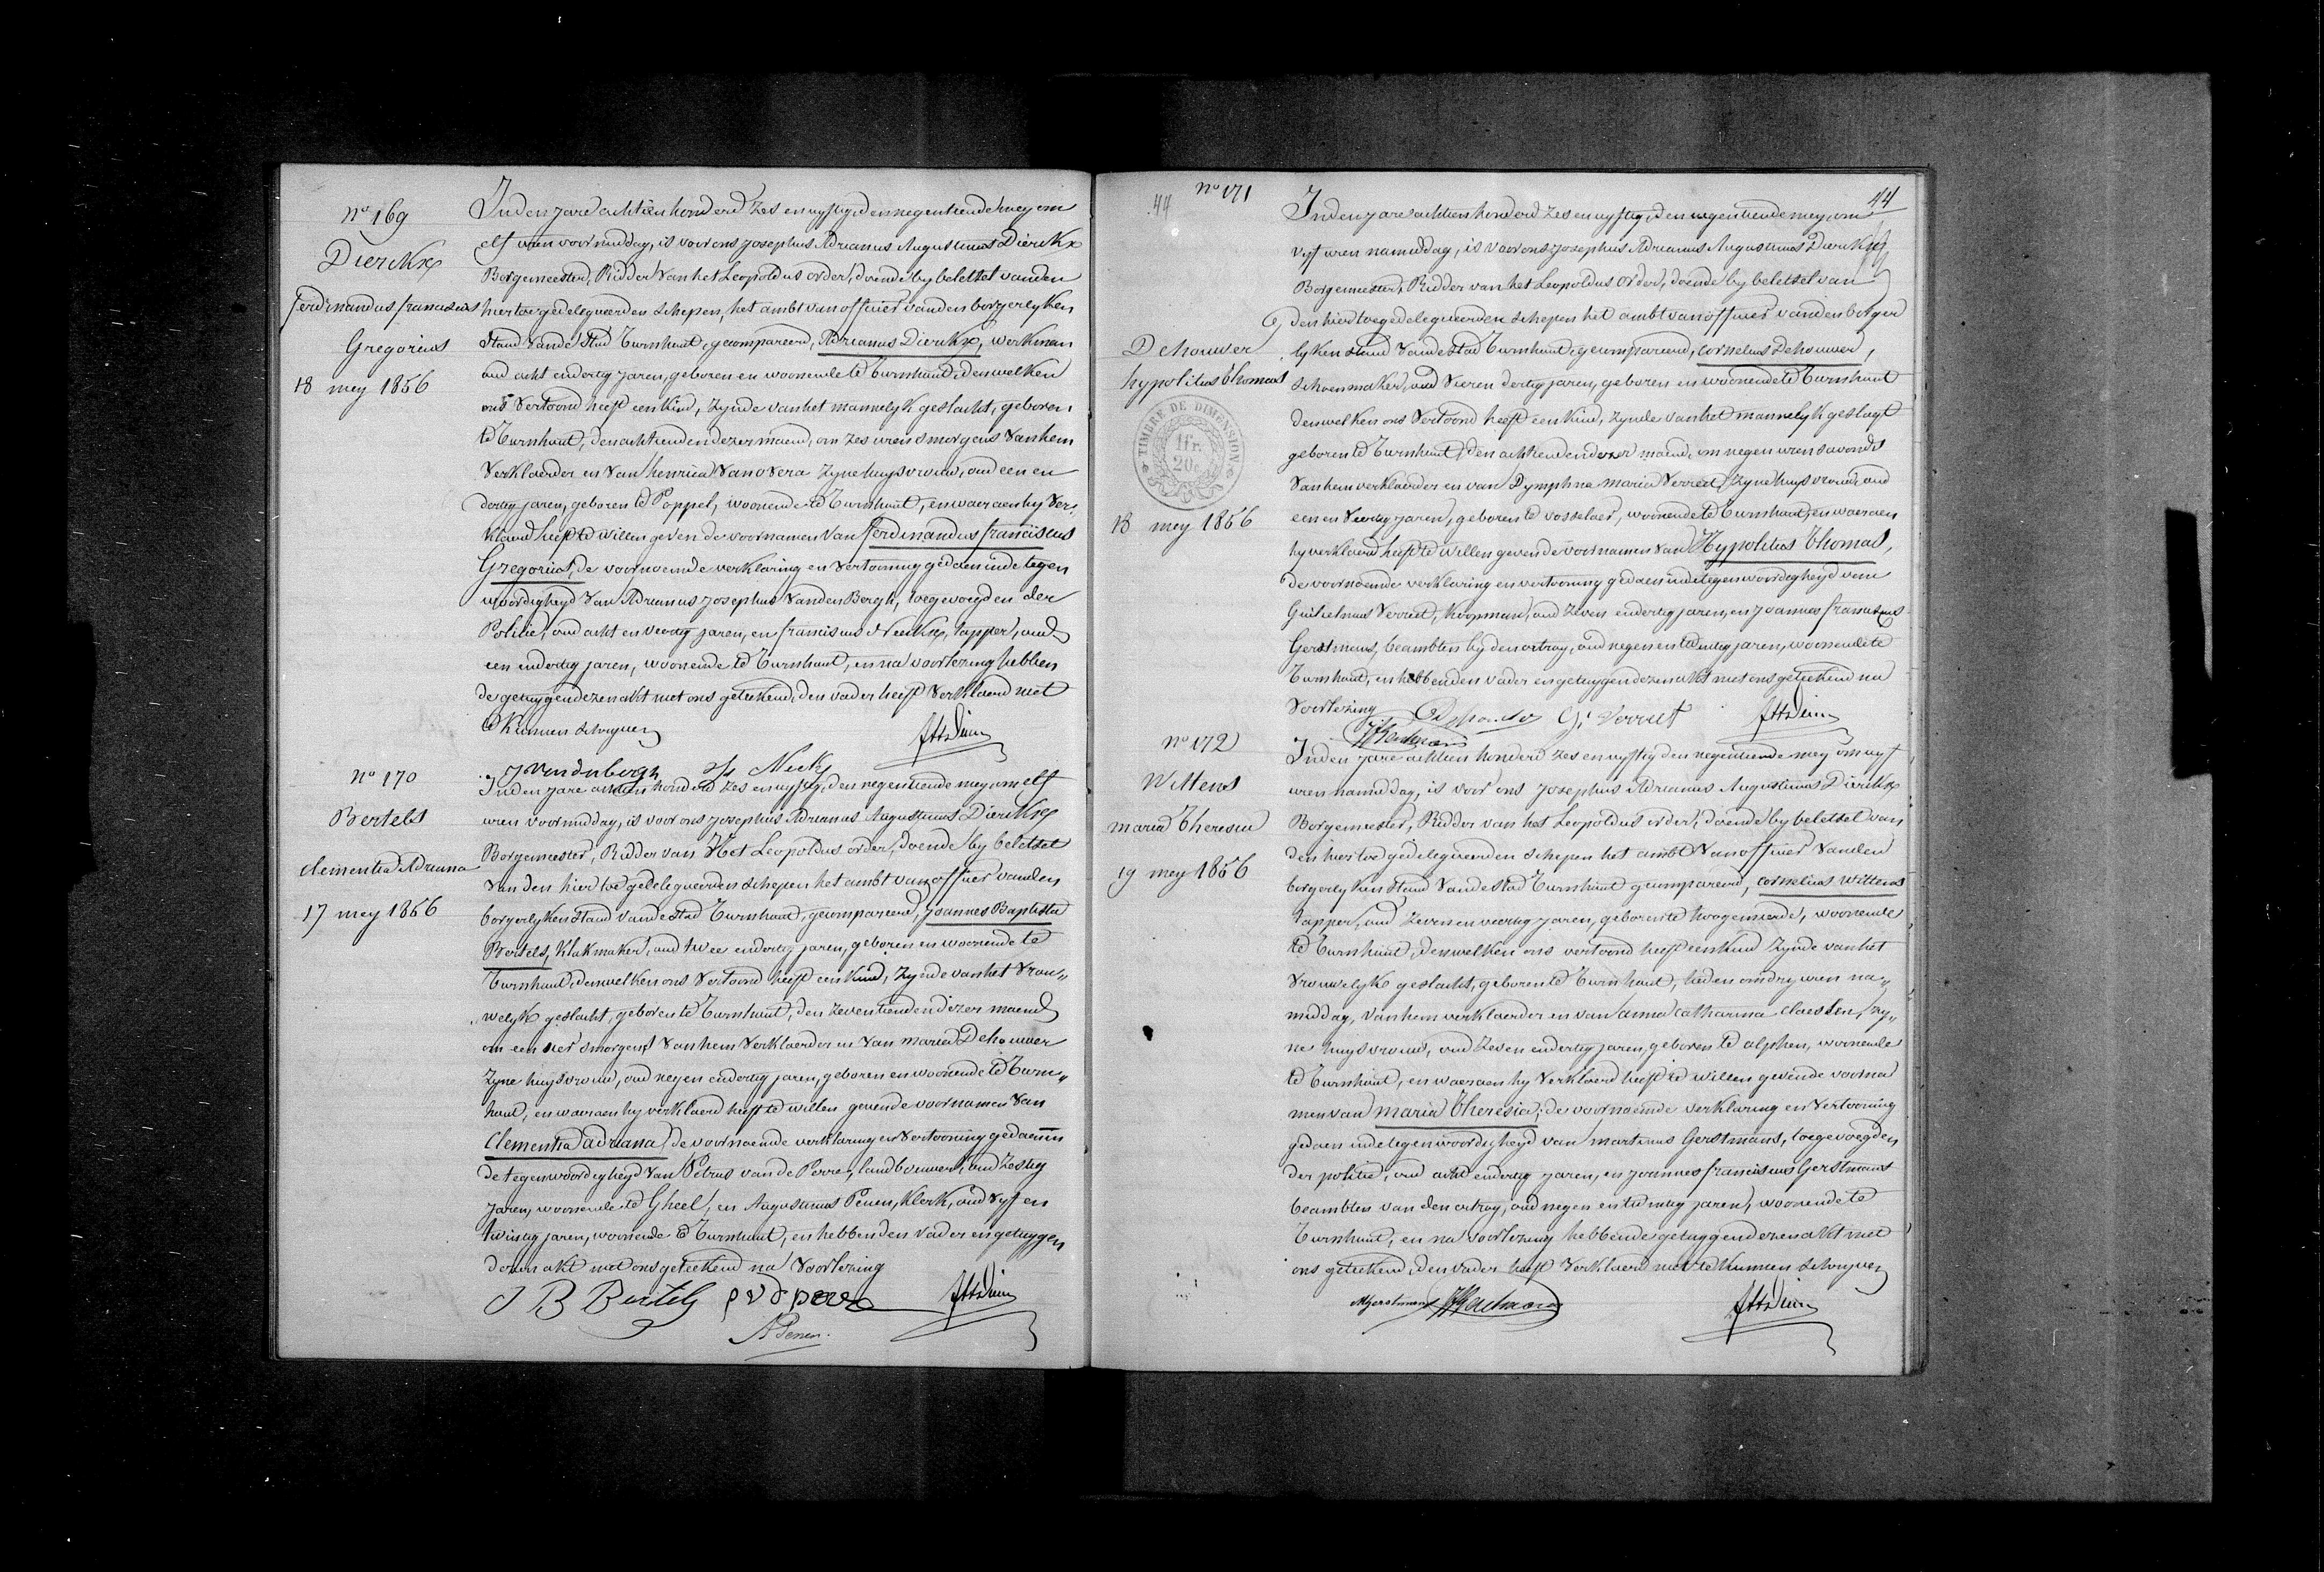 n° 169
Dierckx
ferdinandus franciscus
Gregorius
18 mey 1856
In den jare achtien honderd zes en vyftig, den negentiende mey om
elf uren voormiddag, is voor ons Josephus Adrianus Augustinus Dierckx
Borgemeester, Ridder van het Leopoldus order, doende by beletsel van den
hiertoe gedelegueerden schepen, het ambt van officier van den borgerlyken
stand van de stad Turnhout, gecompareerd, Adrianus Dierckx, werkman
oud acht en dertig jaren, geboren en woonende te Turnhout, denwelken
ons vertoond heeft een kind, zynde van het mannelyk geslacht, geboren
te Turnhout, den achtienden dezer maend, om zes uren smorgens van hem
verklaerder en van henrica Van overa zyne huysvrouw, oud een en
dertig jaren, geboren te Poppel, woonende te Turnhout, en waeraen hy ver,
klaerd heeft te willen geven de voornamen van ferdinandus franciscus
Gregorius, de voornoemde verklaring en vertooning gedaen in de tegen
woordigheyd van Adrianus Josephus Vanden Bergh, toegevoegden der
Policie, oud acht en veertig jaren, en franciscus Neckx, tapper, oud
een en dertig jaren, woonende te Turnhout, en na voorlezing hebben
de getuygen dezen akt met ons geteekend, den vader heeft verklaerd niet
te kunnen schryven
J Vandenbergh Fs Neckx
n° 170
Bertels
clementia Adriana
17 mey 1856
In den jare achtien honderd zes en vyftig, den negentiende mey om elf
uren voormiddag, is voor ons Josephus Adrianus Augustinus Dierckx
Borgemeester, Ridder van Het Leopoldus order, doende by beletsel
van den hier toe gedelegueerden schepen het ambt van officier van den
borgerlyken stand van de stad Turnhout, gecompareerd, Joannes Baptista
Bertels, Klakmaker, oud twee en dertig jaren, geboren en woonende te
Turnhout, denwelken ons vertoond heeft een kind, zynde van het vrou,,
welyk geslacht, geboren te Turnhout, den zeventienden dezer maend
om een uer smorgens van hem verklaerder en van maria Dehouwer
zyne huysvrouw, oud negen en dertig jaren, geboren en woonende te Turn,,
hout, en waeraen hy verklaerd heeft te willen geven de voornamen van
Clementia adriana, de voornoemde verklaring en vertooning gedaen in
de tegenwoordigheyd van Petrus van de Perre, landbouwer, oud zestig
jaren, woonende te Gheel, en Augustinus Penen, klerk, oud vyf en
twintig jaren, woonende te Turnhout, en hebben den vader en getuygen
dezen akt met ons geteekend na voorlezing
J B Bertels p v d perre
A Penen
44
n° 171
44
Dehouwer
hypolitus thomas
TIMBRE DE DIMENSION
1 fr.
20 c
18 mey 1856
In den jare achtien honderd zes en vyftig, den negentiende mey, om
vyf uren namiddag, is voor ons Josephus Adrianus Augustinus Dierckx
Borgemeester, Ridder van het Leopoldus order, doende by beletsel van
den hiertoe gedelegueerden schepen het ambt van officier van den borger
lyken stand van de stad Turnhout, gecompareerd, cornelius Dehouwer,
schoenmaker, oud vier en dertig jaren, geboren en woonende te Turnhout
denwelken ons vertoond heeft een kind, zynde van het mannelyk geslagt
geboren te Turnhout, den achtienden dezer maend, om negen uren savonds
van hem verklaerder en van Dymphna maria Verreet, zyne huysvrouw, oud
een en veertig jaren, geboren te vosselaer, woonende te Turnhout, en waeraen
hy verklaerd heeft te willen geven de voornamen van Hypolitus Thomas,
de voornoemde verklaring en vertooning gedaen in de tegenwoordigheyd van
Guilielmus Verreet, koopman, oud zeven en dertig jaren, en Joannes franciscus
Gerstmans, beambten by den octroy, oud negen en twintig jaren, woonende te
Turnhout, en hebben den vader en getuygen dezen akt met ons geteekend na
voorlezing
G. Verreet
n° 172
Willems
maria Theresia
19 mey 1856
In den jare achtien honderd zes en vyftig den negentiende mey om vyf
uren namiddag, is voor ons Josephus Adrianus Augustinus Dierckx
Borgemeester, Ridder van het Leopoldus order, doende by beletsel van
den hiertoe gedelegueerden schepen het ambt van officier van den
borgerlyken stand van de stad Turnhout gecompareerd, cornelius Willems
tapper, oud zeven en veertig jaren, geboren te hoogemierde, woonende
te Turnhout, denwelken ons vertoond heeft een kind zynde van het
vrouwelyk geslacht, geboren te Turnhout, heden om dry uren na,,
middag, van hem verklaerder en van anna catharina claessen, zy,,
ne huysvrouw, oud zes en dertig jaren, geboren te alphen, woonende
te Turnhout, en waeraen hy verklaerd heeft te willen geven de voorna
men van maria theresia, de voornoemde verklaring en vertooning
gedaen in de tegenwoordigheyd van martinus Gerstmans, toegevoegden
der policie, oud acht en dertig jaren, en joannes franciscus Gerstmans
beambten van den octroy, oud negen en twintig jaren, woonende te
Turnhout, en na voorlezing hebben de getuygen dezen akt met
ons geteekend, den vader heeft verklaerd niet te kunnen schryven
MGerstmans